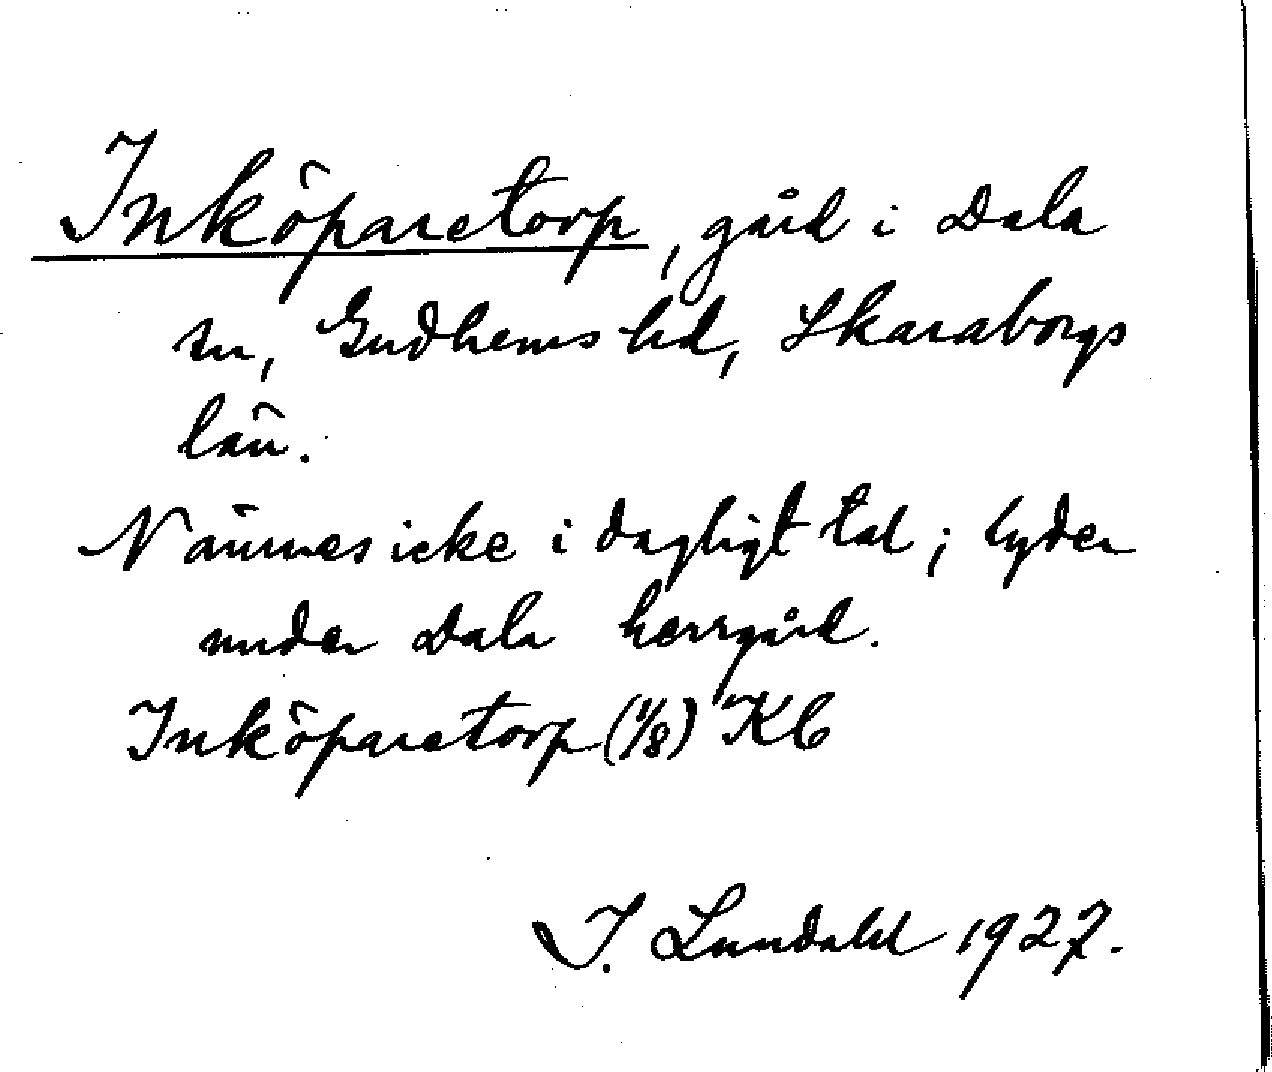 Inköparetorp, gård i Dala
sn, Gudhems hd, Skaraborgs
län.
Nämnes icke i dagligt tal; lyder
under Dala herrgård.
Inköparetorp (1/8) Kb
I. Lundahl 1927.